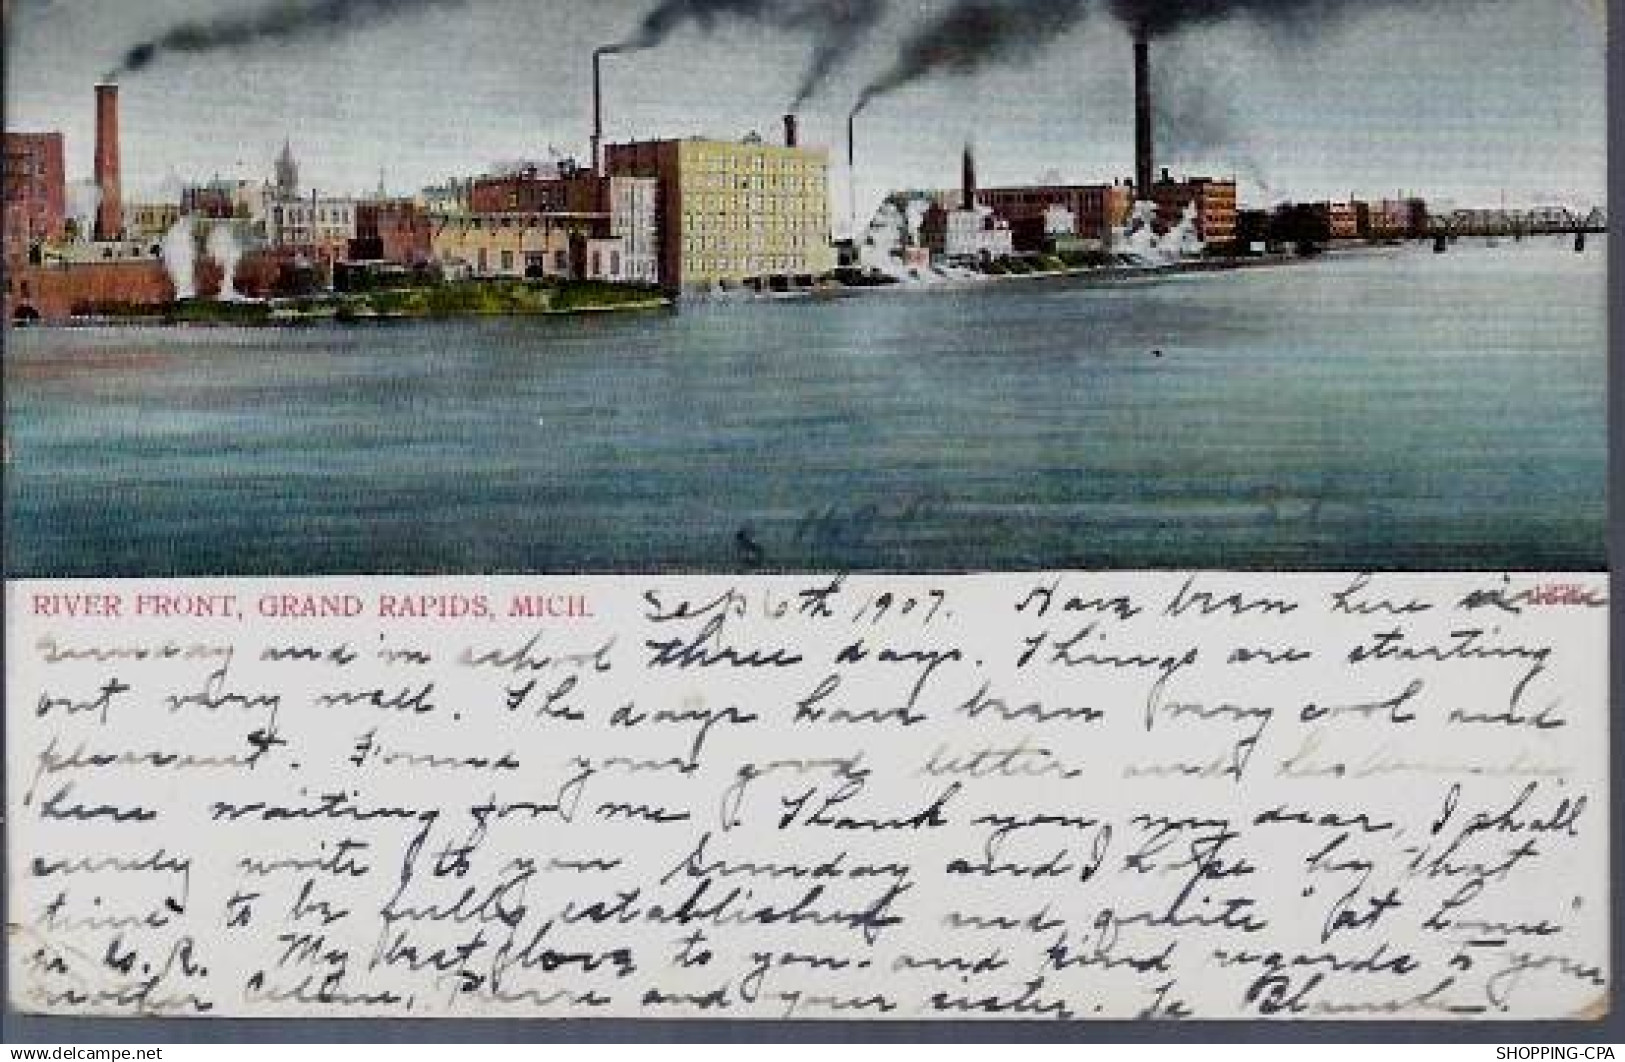 RIVER FRONT, GRAND RAPIDS, MICH. Sep 6th 1907. Have been here
Sunday and in school three days. Things are starting
out very well. The days have been very cool and
pleasant. Found your good letter and
here waiting for me. Thank you, my dear, I shall
surely write to you Sunday and I hope by that
time to be fully established and quite "at home"
in G. R. My best love to you. and kind regards to your
mother Celine, Pierre and your sister. Blanche.
SHOPPING-CPA
www.delcampe.net